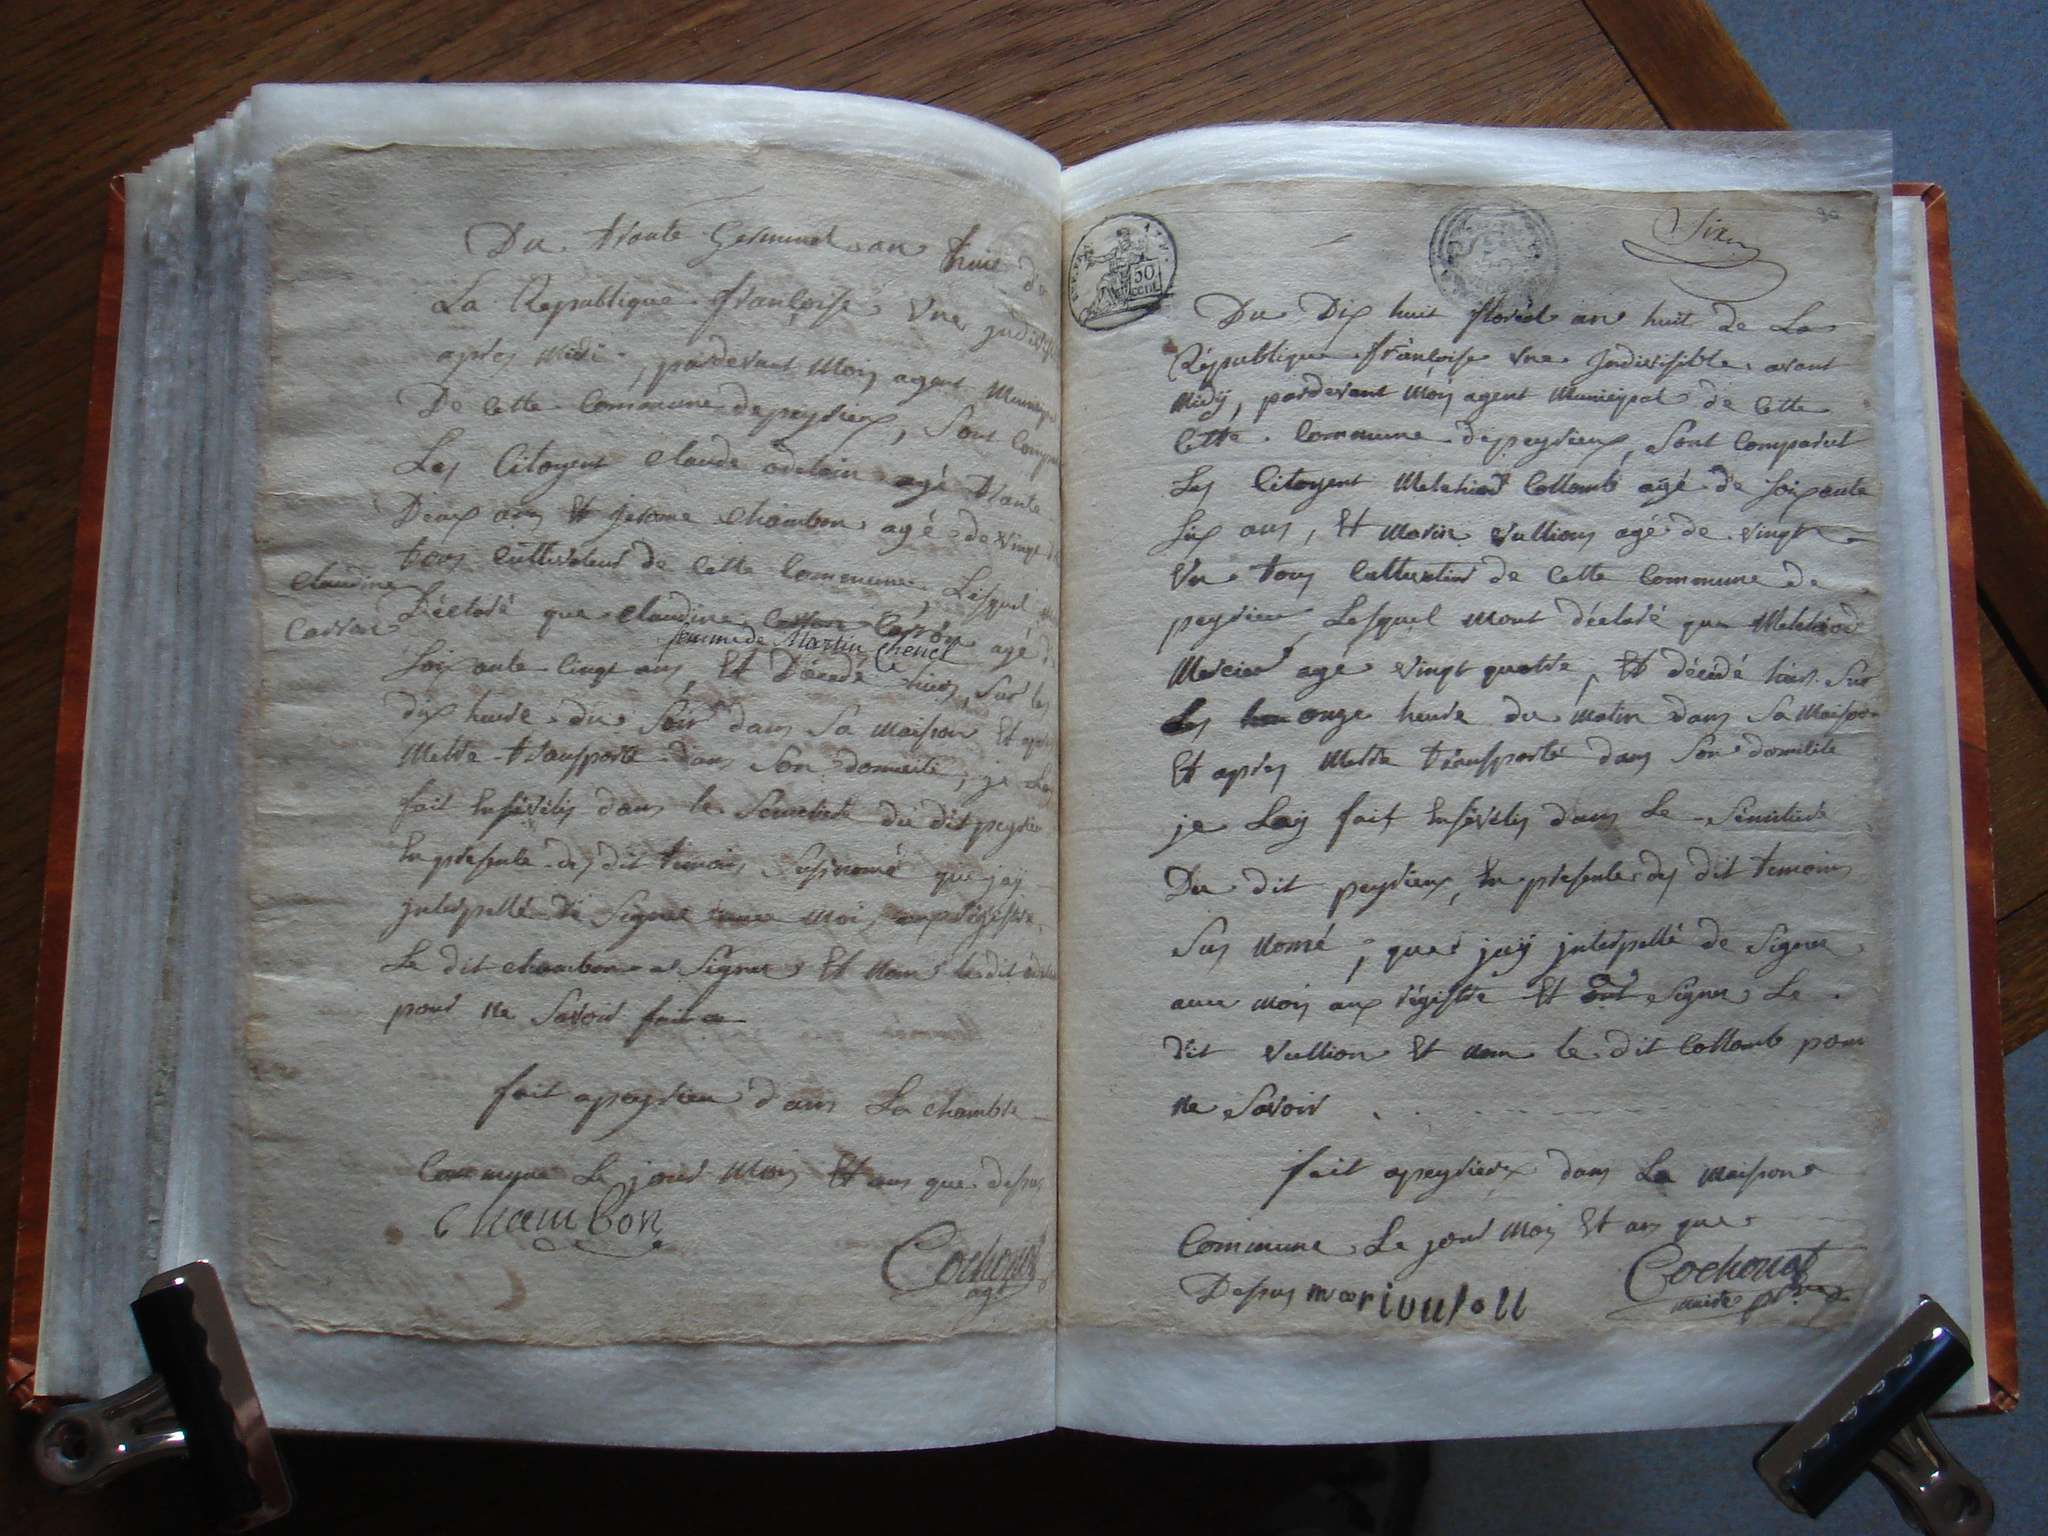 Du trante Germinal an huit de
La Republique françoise Vne jndivisi
apres Midi, pardevant Moy agent Municipal
De cette Commune depeyrieux, Sont compar
Les Citoyent claude odobain agé trante
Deux ans Et jerome chambon agé de vingt
trois Cultivateur de Cette Commune, Lesquel
claudine
Carron
Déclaré que claudine Carron agé de
femme de Martin Chenel
Soixante Cinqt ans, Et Décédé hiers, Sur les
dix heure du Soir dans Sa Maison Et apres
Mettre transporté dans Son domicile, je Lay
fait Ensévélis dans le Semetiere du dit peyrieu
En présente des dit temoins Susnomé que jay
jnterpellé de Signer avec Moi aux régistre
Le dit chambon a Signer Et non le dit
pour ne Savoir faire
fait apeyrieu dans La chambre
Commune Le jour Mois Et ans que desus
Chambon
Cochonat
agt
50
cent
Six
Du Dix huit floréal an huit de La
République françoise Vne jndivisible avant
Midy, pardevant Moy agent Municipal de Cette
Cette Commune depeyrieux, Sont Comparut
Les Citoyent Melchior Collomb agé de Soixante
Six ans, Et Marin Vullion agé de vingt
Vn tous Cultivateur de Cette Commune de
peyrieu, Lesquel Mont déclaré que Melchior
Mercier agé vingt quatre, Et décédé hiers Sur
Les onze heure du Matin dans Sa Maison
Et apres Mettre transporté dans Son domicile
je Lay fait Ensévélis dans Le Simitiere
Du dit peyrieux, En présente des dit temoins
Sus Nomé, que jay jnterpellé de Signer
avec Moy aux régistre Et ont Signer Le
dit Vullion Et non le dit Collomb pour
ne Savoir
fait apeyrieux dans La Maison
Commune Le jour Mois Et an que
Desus marivulion
Cochonat
Maire